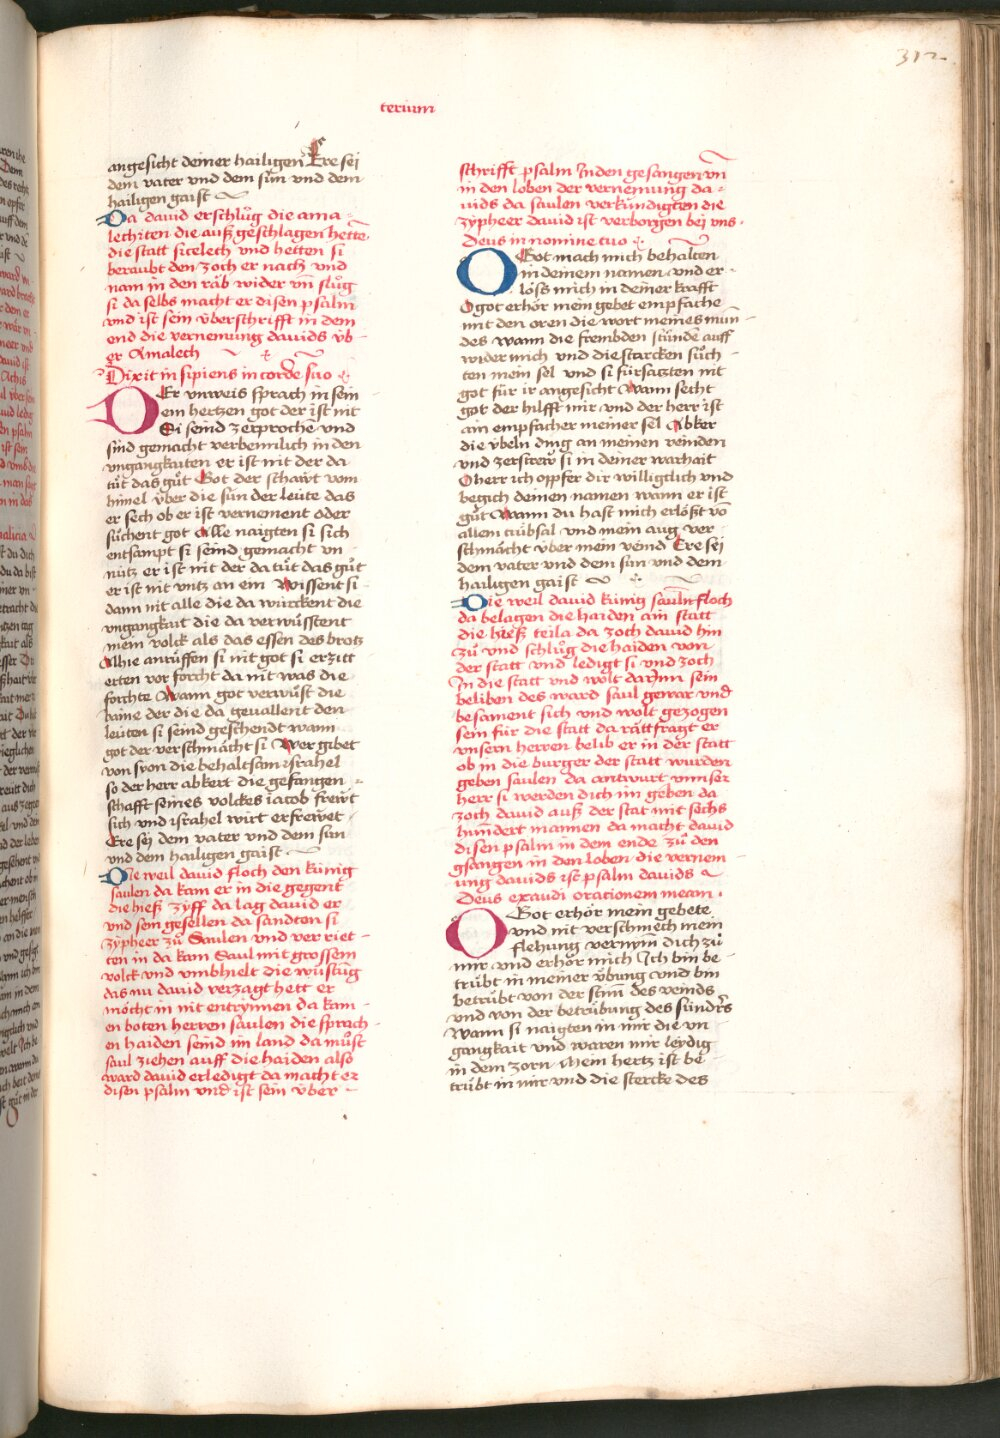 312
terium
angesicht deiner hailigen Ere sei
dem vater vnd dem sun vnd dem
hailigen gaist
Da david erschlůg die ama
lechiten die auß geschlagen hette
die statt sicelech vnd hetten si
beraubt den zoch er nach vnd
nam in den rāb wider vñ slůg
si da selbs macht er disen psalm
vnd ist sein v̈berschrifft in dem
end die vernemung davids v̈b
er Amalech
Dixit insipiens in corde suo
DEr vnweis sprach in sein
ein hertzen got der ist nit
Si seind zerprochē vnd
sind gemacht verbennlich in den
vngangkaiten er ist nit der da
tůt das gůt Got der schawt vom
himel v̈ber die sun der leute das
er sech ob er ist vernement oder
sůchent got Alle naigten si sich
entsampt si seind gemacht vn
nütz er ist nit der da tůt das gůt
er ist nit vntz an ein Wissent si
dann nit alle die da würckent die
vngangkait die da verwüsstent
mein volck als das essen des brotz
Alhie anrůffen si nit got si erzitt
erten vor forcht da nit was die
forchte Wann got verwüst die
baine der die da gevallent den
leuten si seind geschendt wann
got der verschmächt si Wer gibet
von syon die behaltsam israhel
so der herr abkert die gefangen
schafft seines volckes iacob frewt
sich vnd israhel wirt erfrewet
Ere sei dem vater vnd dem sun
vnd dem hailigen gaist
Die weil david floch den künig
saulen da kam er in die gegent
die hieß zyff da lag david er
vnd sein gesellen da sandten si
zypheer zů Saulen vnd verriet
ten in da kam Saul mit grossem
volck vnd vmbhielt die wůstūg
das nu david verzagt hett er
möcht in nit entrynnen da kam
en boten herren saulen die sprach
en haiden seind im land da můst
saul ziehen auff die haiden also
ward david erledigt da macht er
disen psalm vnd ist sein v̈ber
schrifft psalm In den gesangen vñ
in den loben der vernemung da
uids da saulen verkündigten die
zypheer david ist verborgen bei vns
Deus in nomine tuo
OGot mach mich behalten
in deinem namen vnd er
löss mich in deiner krafft
O got erhör mein gebet empfache
mit den oren die wort meines mun
des wann die frembden stůnde auff
wider mich vnd die starcken sůch
ten mein sel vnd si fürsatzten nit
got für ir angesicht Wann secht
got der hilfft mir vnd der herr ist
ain empfacher meiner sel Abker
die v̈beln ding an meinen veinden
vnd zerstrew si in deiner warhait
O herr ich opffer dir willigclich vnd
begich deinen namen wann er ist
gůt Wann du hast mich erlößt vō
allem trübsal vnd mein aug ver
schmächt v̈ber mein veind Ere sei
dem vater vnd dem sun vnd dem
hailigen gaist
Die weil david künig sauln floch
da belagen die haiden ain statt
die hieß teila da zoch david hin
zů vnd schlůg die haiden von
der statt vnd ledigt si vnd zoch
In die statt vnd wolt darinn sein
beliben des ward saul gewar vnd
besament sich vnd wolt gezogen
sein für die statt da rättfragt er
vnsern herren belib er in der statt
ob in die burger der statt wurden
geben saulen da antwurt vnnser
herr si werden dich im geben da
zoch david auß der stat mit sechs
hundert mannen da macht david
disen psalm in dem ende zů den
gsangen in den loben die vernem
ung davids ist psalm davids
Deus exaudi orationem meam
OGot erhör mein gebete
vnd nit verschmech mein
flehung vernym dich zů
mir vnd erhör mich Ich bin be
trübt in meiner v̈bung vnd bin
betrübt von der stim̄ des veinds
vnd von der betrübung des sünders
Wann si naigten in mir die vn
gangkait vnd waren mir leydig
in dem zorn Mein hertz ist be
trübt in mir vnd die stercke des